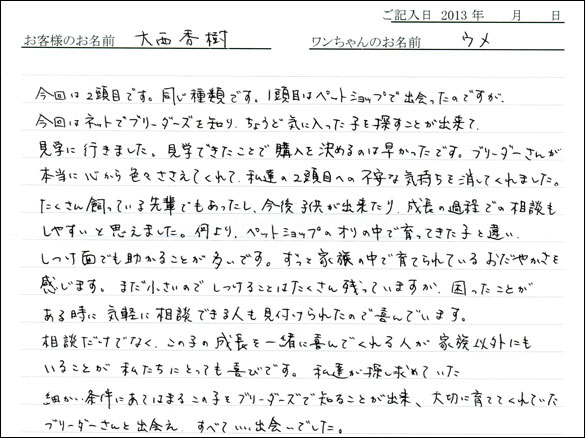 ご記入日 2013 年 月 日
お客様のお名前 大西香樹 ワンちゃんのお名前 ウメ
今回は2頭目です。同じ種類です。1頭目はペットショップで出会ったのですが、
今回はネットでブリーダーズを知り、ちょうど気に入った子を探すことが出来て、
見学に行きました。見学できたことで購入を決めるのは早かったです。ブリーダーさんが
本当に心から色々ささえてくれて、私達の2頭目への不安な気持ちを消してくれました。
たくさん飼っている先輩でもあったし、今後子供が出来たり、成長の過程での相談も
しやすいと思えました。何より、ペットショップのオリの中で育ってきた子と違い、
しつけ面でも助かることが多いです。ずっと家族の中で育てられているおだやかさを
感じます。まだ小さいのでしつけることはたくさん残っていますが、困ったことが
ある時に気軽に相談できる人も見付けられたので喜んでいます。
相談だけでなく、この子の成長を一緒に喜んでくれる人が家族以外にも
いることが私たちにとっても喜びです。私達が探し求めていた
細かい条件にあてはまるこの子をブリーダーズで知ることが出来、大切に育ててくれていた
ブリーダーさんと出会え、すべていい出会いでした。